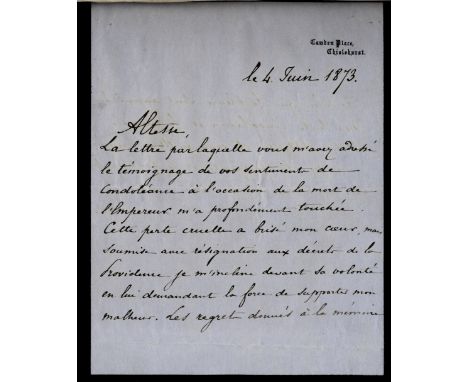 Camden Place,
Chislehurst.
le 4 Juin 1873.
Altesse,
La lettre par laquelle vous m'avez adressé
le témoignage de vos sentiments de
Condoléance à l'occasion de la mort de
l'Empereur m'a profondément touchée.
Cette perte cruelle a brisé mon cœur, mais
soumise avec résignation aux décrets de la
Providence je m'incline devant sa volonté
en lui demandant la force de supporter mon
malheur. Les regrets donnés à la mémoire